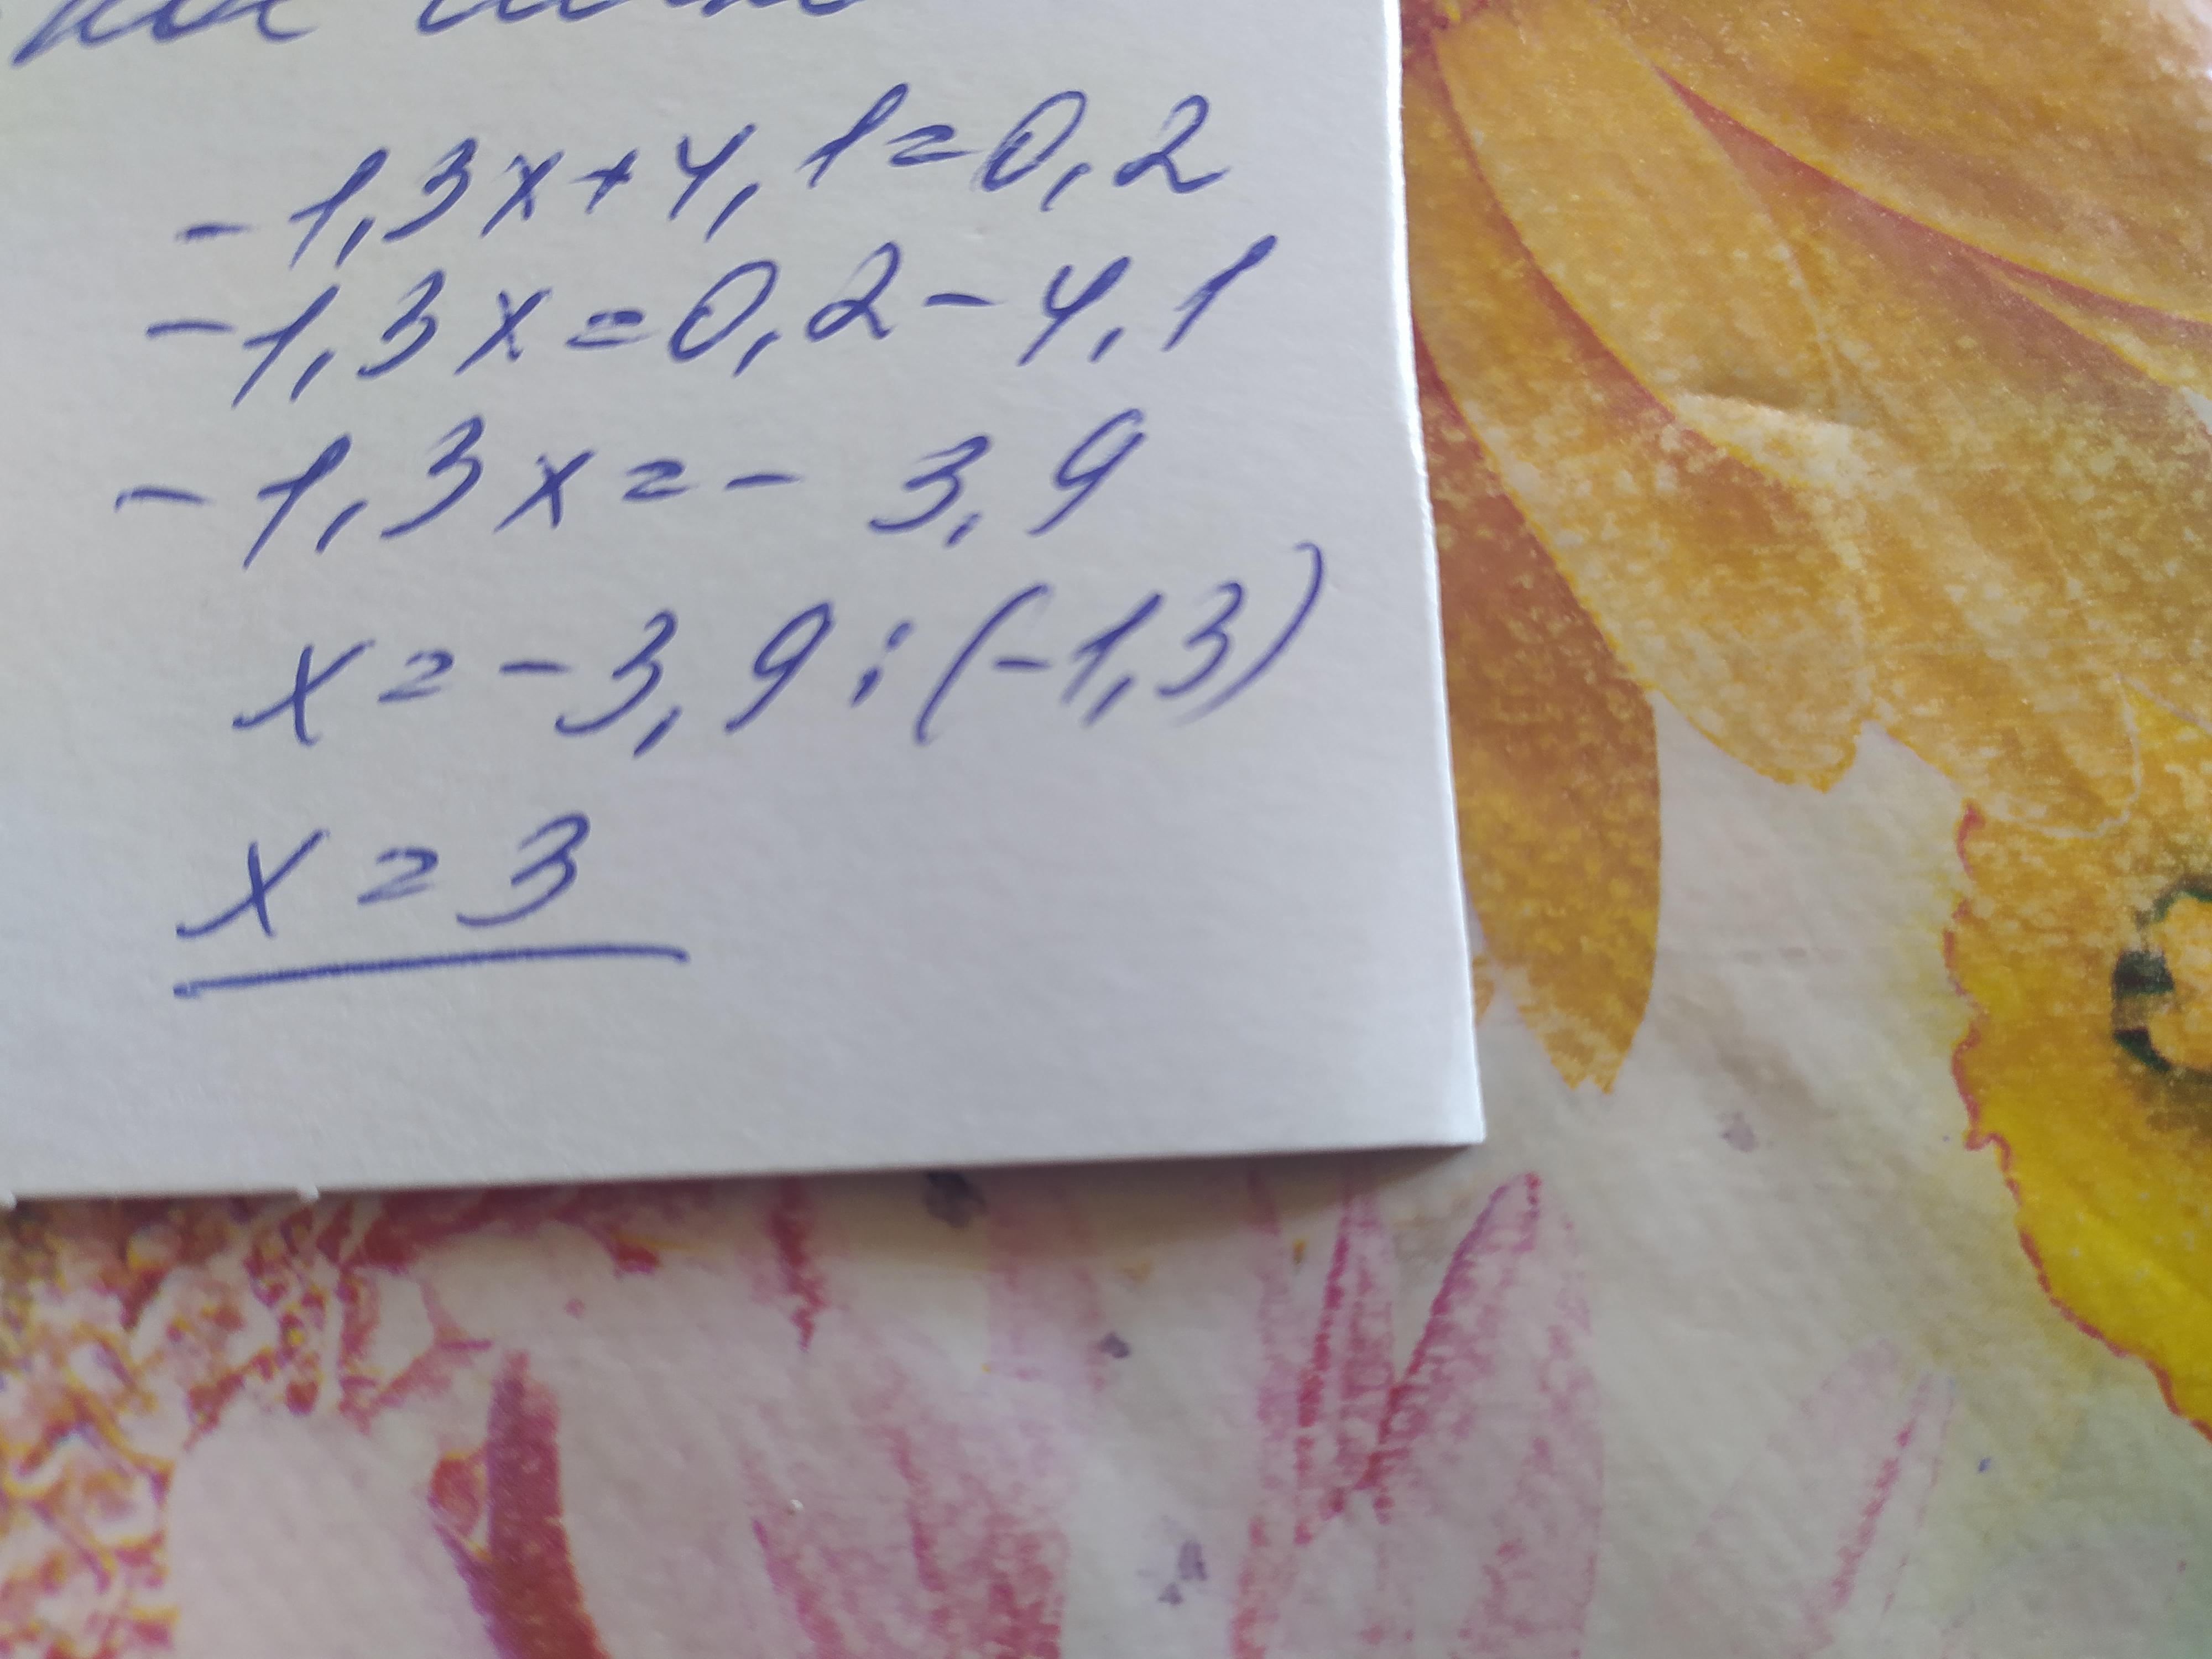 -1,3x+4,1=0,2
-1,3x=0,2-4,1
-1,3x=-3,9
x=-3,9:(-1,3)
x=3